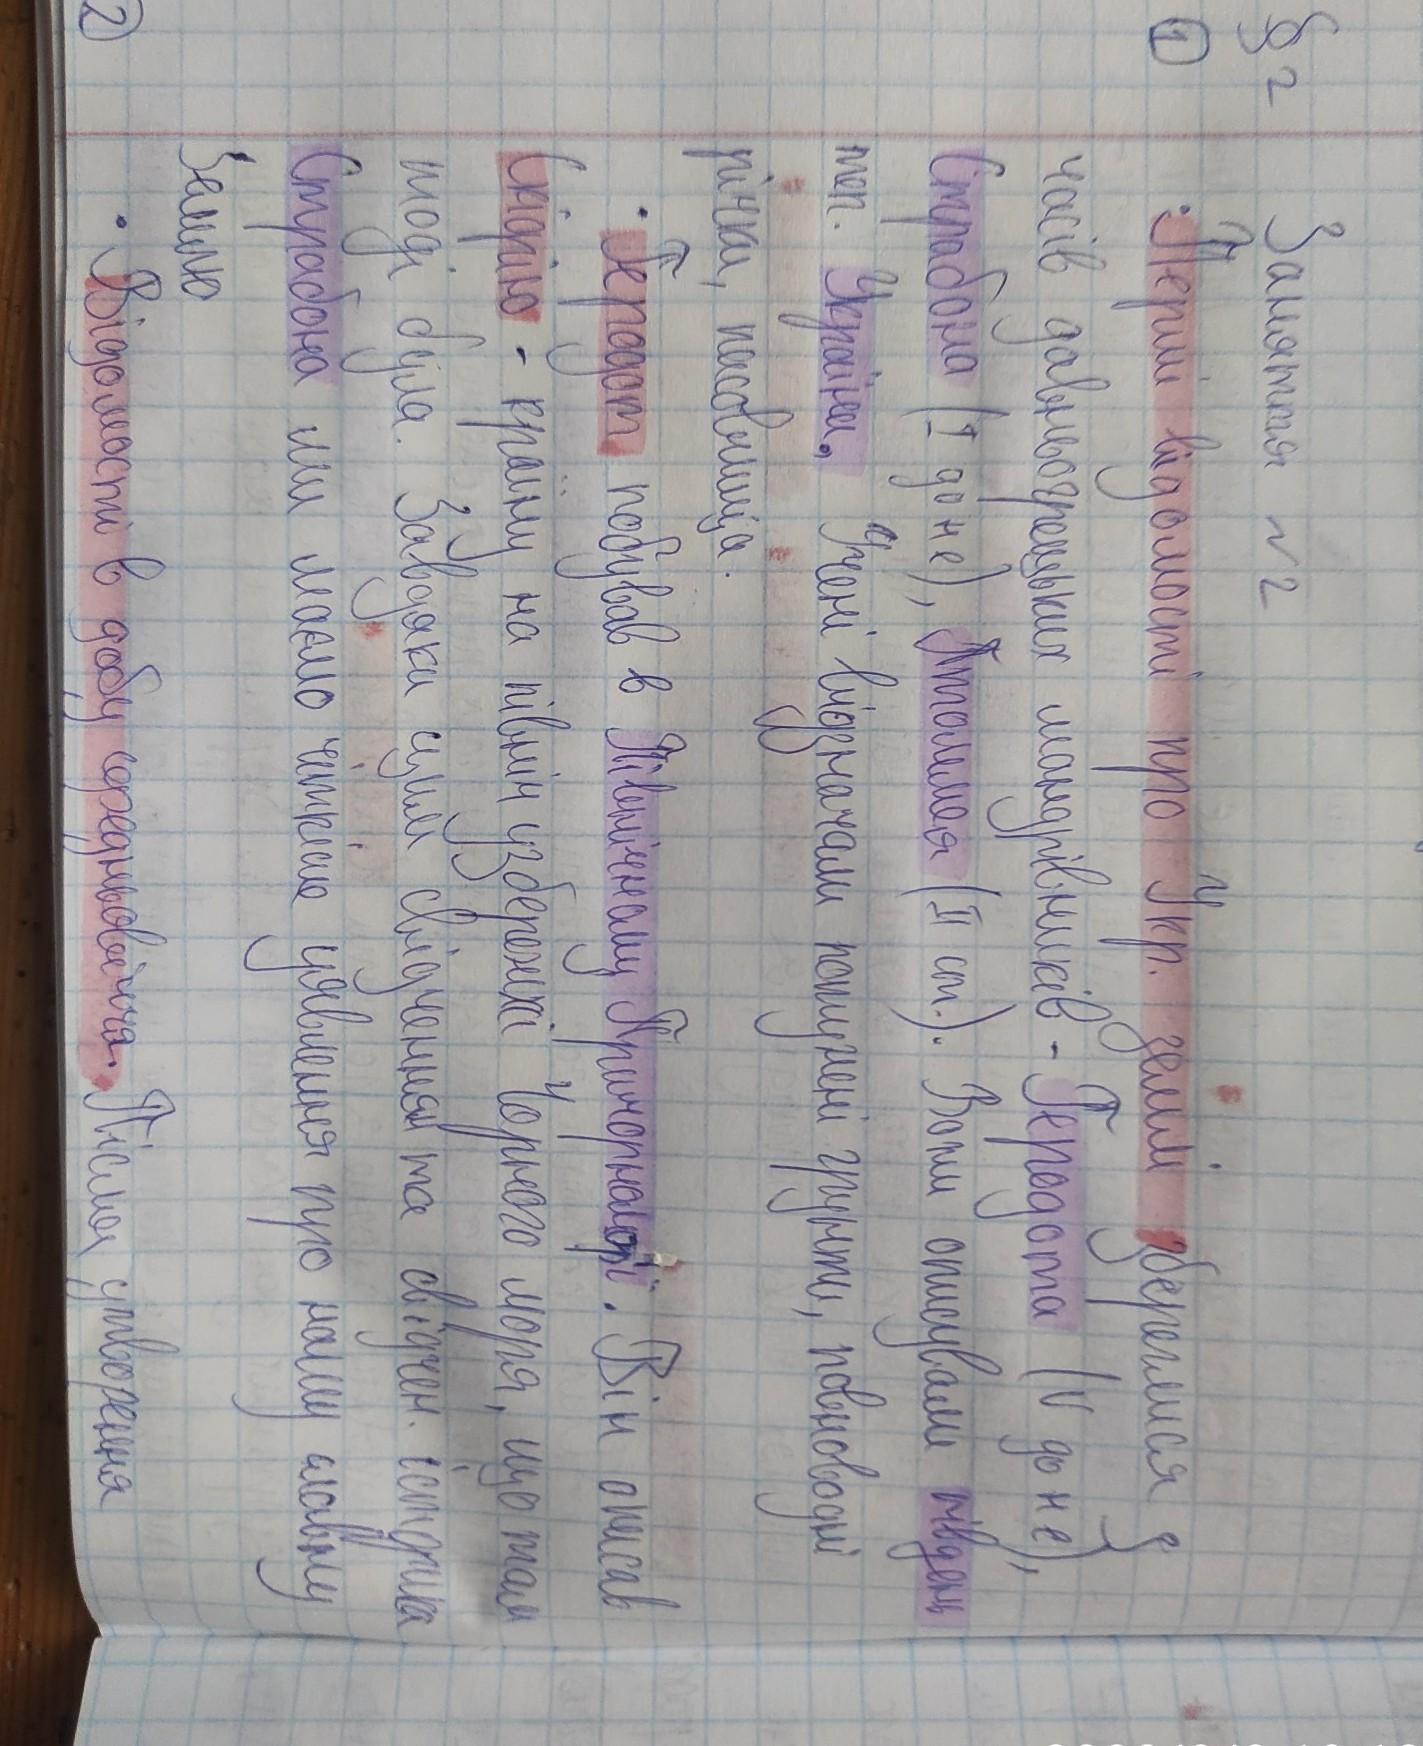 § 2
Заняття № 2
① • Перші відомості про Укр. землі збереглися з
часів давньогрецьких мандрівників - Геродота (V до не),
Страбона (I до не), Птолемея (II ст.). Вони описували південь
тер. України. Учені відзначали потужні ґрунти, повноводні
річки, пасовища.
• Геродот побував в Північному Причорноморї. Він описав
Скіфію - країну на північ узбережжі Чорного моря, що там
тоді була. Завдяки цим свідченням та свідчен. історика
Страбона ми маємо чіткіше уявлення про нашу славну
Землю
② • Відомості в добу середньовіччя. Після утворення